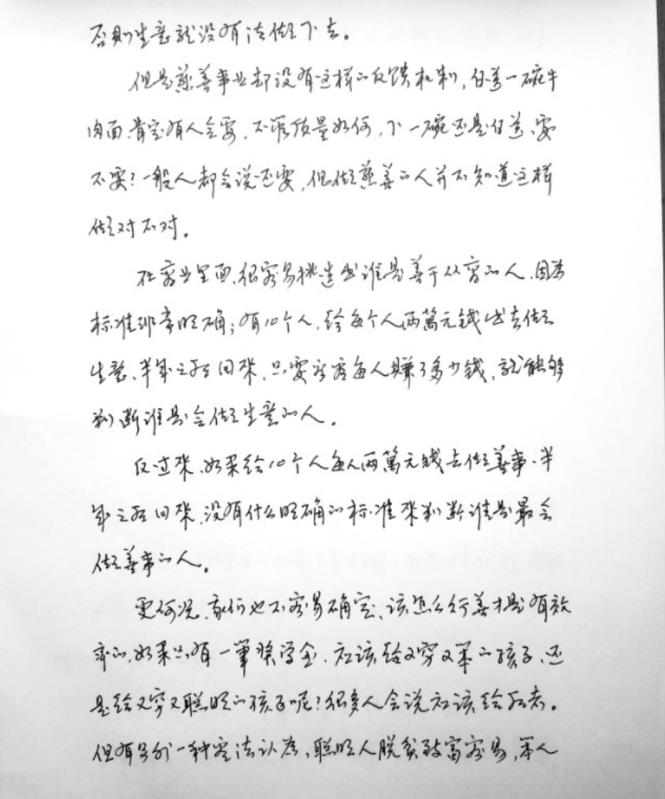 否则生意就没有法做下去。
但是慈善事业却没有这样的反馈机制,白送一碗牛
肉面,肯定有人会要,不管质量如何,下一碗还是白送,要
不要?一般人都会说还要,但做慈善的人并不知道这样
做对不对。
在商业里面,很容易挑选出谁是善于从商的人,因为
标准非常明确;有10个人,给每个人两萬元钱出去做
生意,半年之后回来,只要看看每人赚了多少钱,就能够
判断谁是会做生意的人。
反过来,如果给10个人每人两萬元钱去做善事,半
年之后回来,没有什么明确的标准来判断谁是最会
做善事的人。
更何况,我们也不容易确定,该怎么行善才是有效
率的,如果只有一筆奖学金,应该给又穷又笨的孩子,还
是给又穷又聪明的孩子呢?很多人会说应该给后者。
但有另外一种看法认为,聪明人脱贫致富容易,笨人